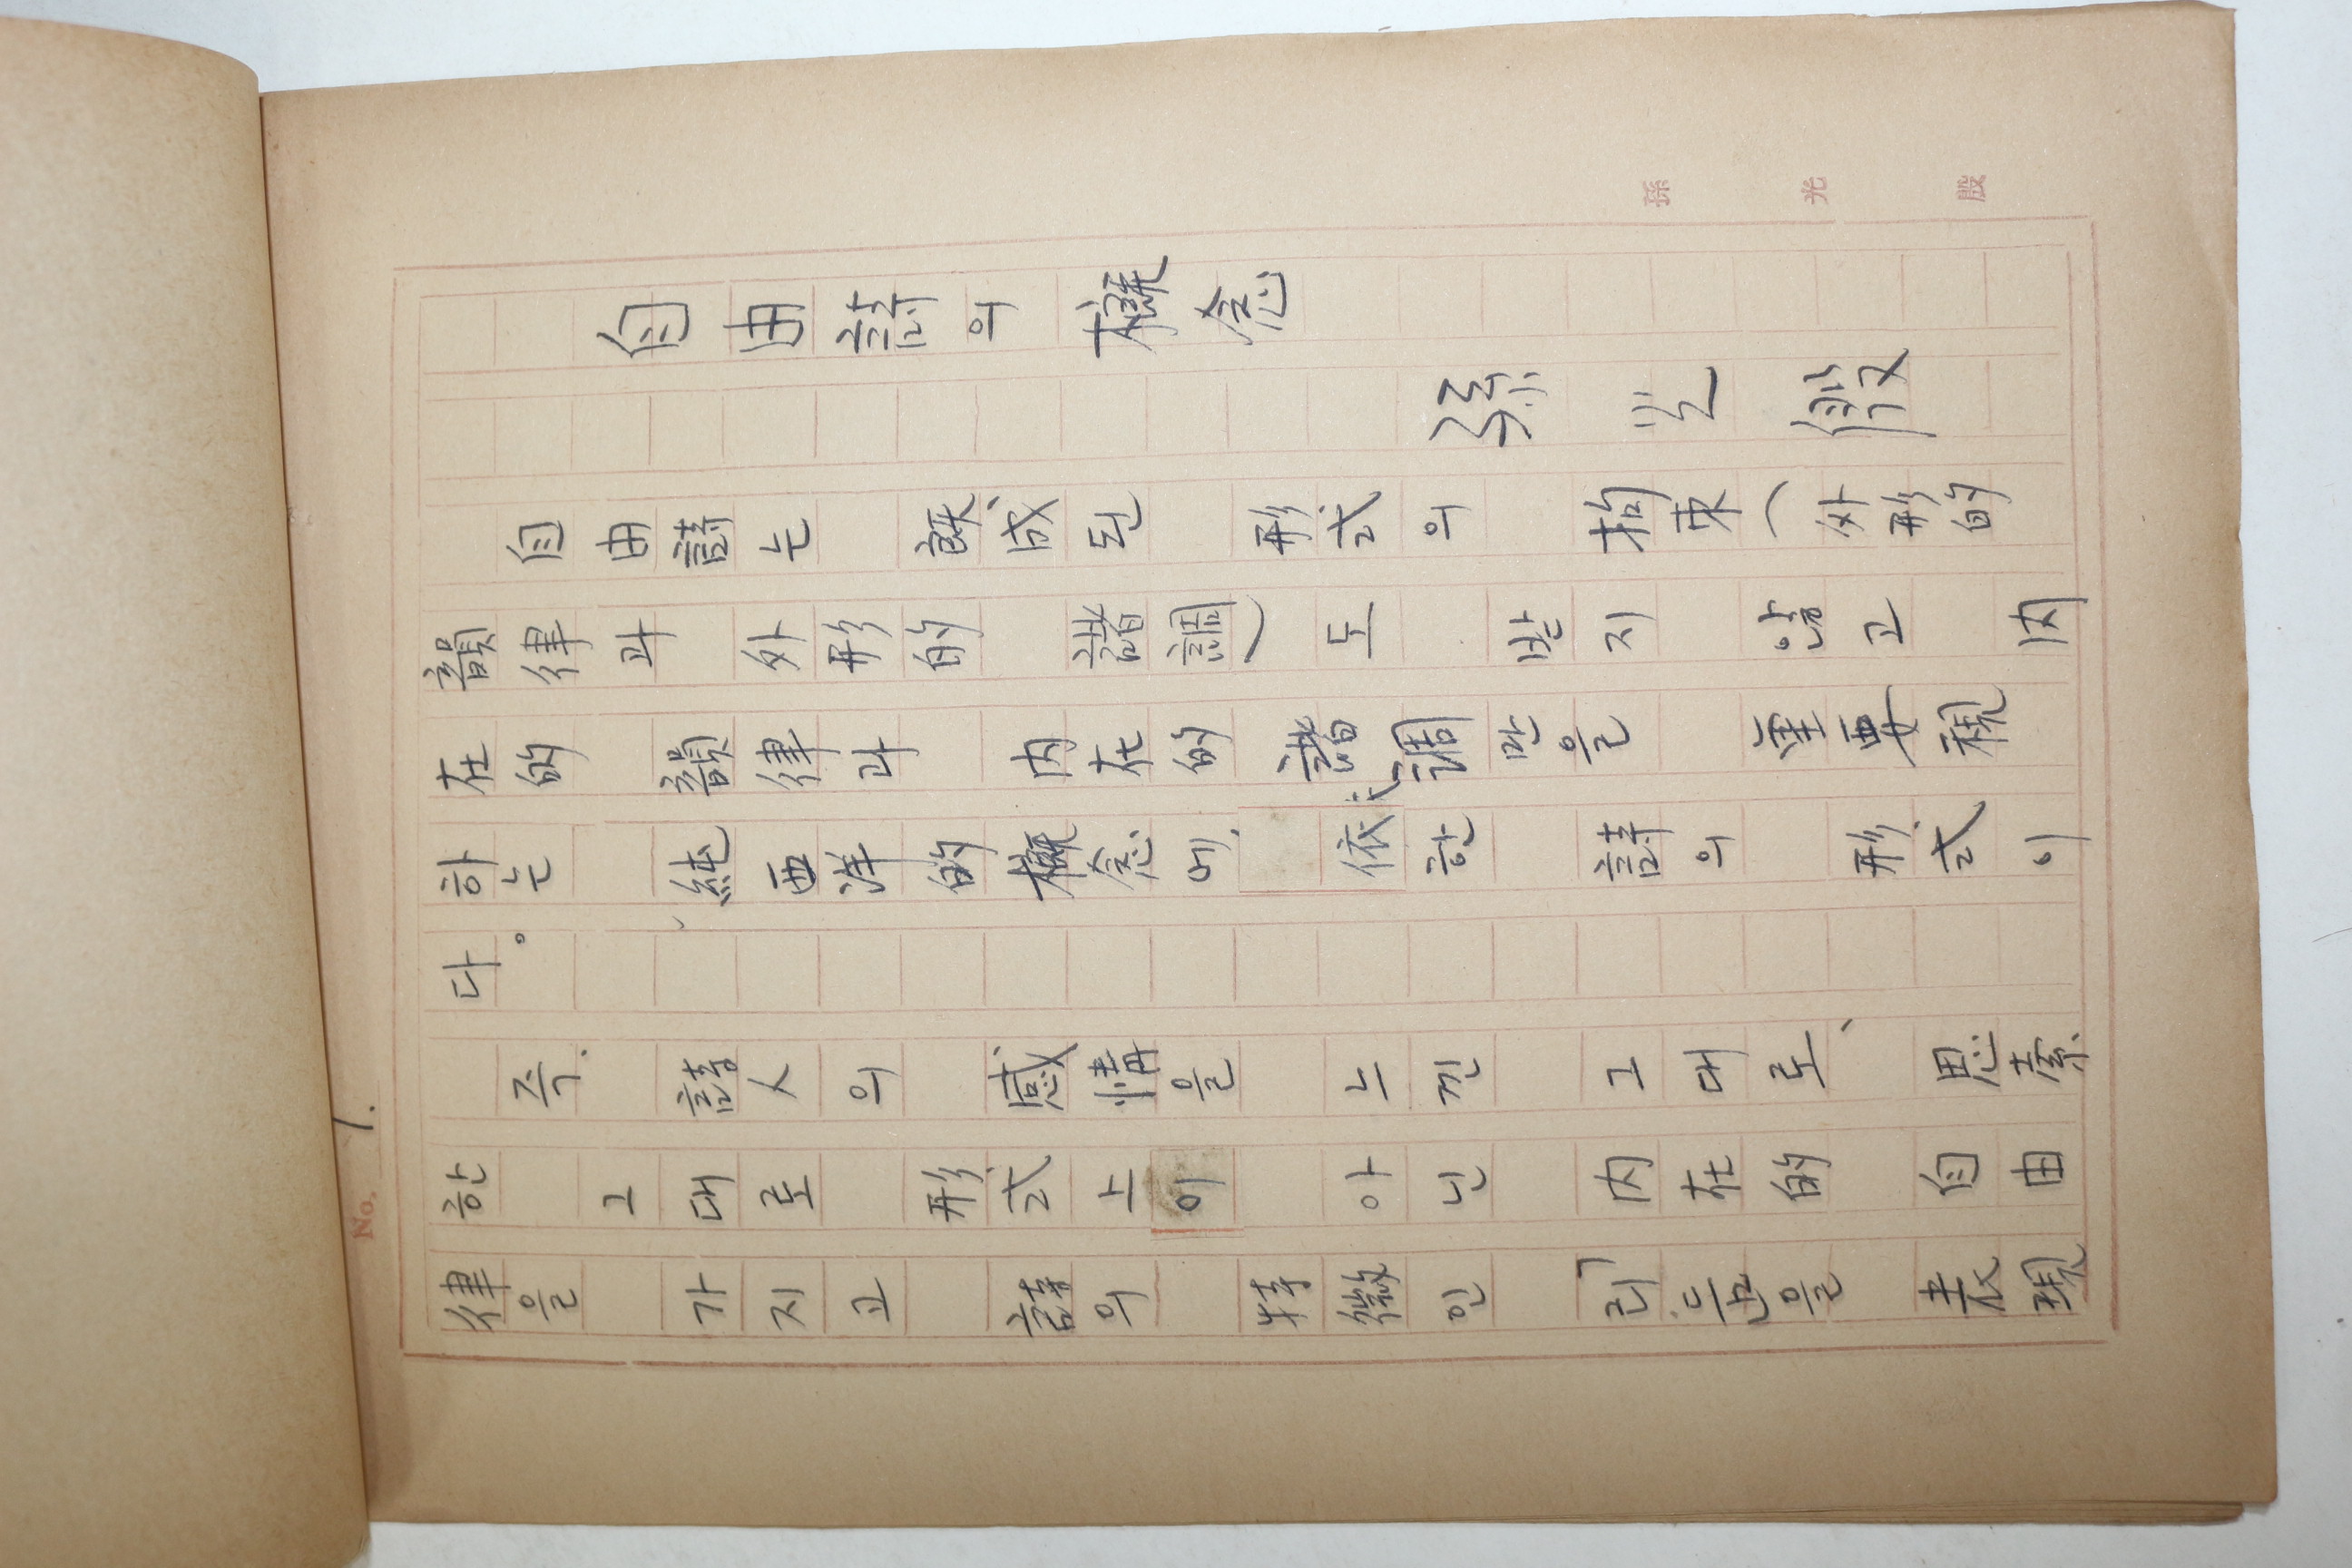 孫光殷
自由詩의 槪念
孫光殷
自由詩는 旣成된 形式의 拘束(外形的
韻律과 外形的 諧調)도 받지 않고 內
在的 韻律과 內在的 諧調만을 重要視
하는 純西洋的 槪念에 依한 詩의 形式이
다。
즉. 詩人의 感情을 느낀 그대로、 思索
한 그대로 形式上이 아닌 內在的 自由
律을 가지고 詩의 特徵인 「리듬」을 表現
No. 1.